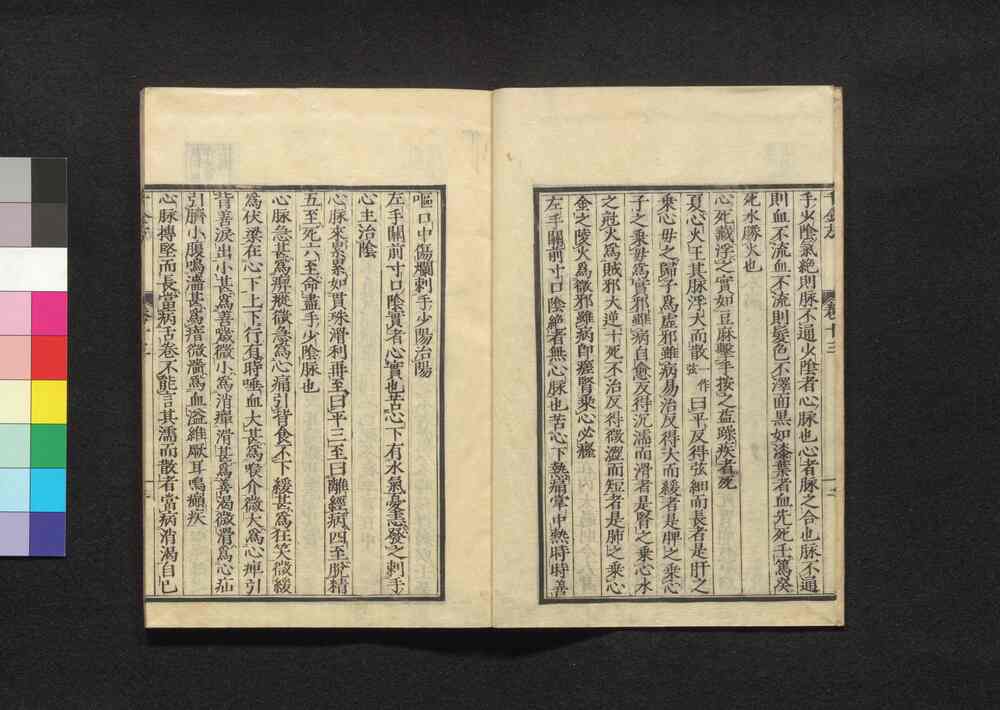 手少陰氣絕則脉不通少陰者心脉也心者脉之合也脉不通
則血不流血不流則髮色不澤面黑如漆葉者血先死壬篤癸
死水勝火也
心死藏浮之實如豆麻擊手按之益躁疾者死
夏心火王其脉浮大而散一作弦曰平反得弦細而長者是肝之
乘心母之歸子爲虛邪雖病易治反得大而緩者是脾之乘心
子之乘母爲實邪雖病自愈反得沉濡而滑者是腎之乘心水
之尅火爲賊邪大逆十死不治反得微濇而短者是肺之乘心
金之陵火爲微邪雖病即瘥腎乘心必癃
左手關前寸口陰絕者無心脉也苦心下熱痛掌中熱時時善
嘔口中傷爛刺手少陽治陽
左手關前寸口陰實者心實也苦心下有水氣憂恚發之刺手
心主治陰
心脉來累累如貫珠滑利再至曰平三至曰離經病四至脫精
五至死六至命盡手少陰脉也
心脉急甚爲瘈瘲微急爲心痛引背食不下緩甚爲狂笑微緩
爲伏梁在心下上下行有時唾血大甚爲喉介微大爲心痺引
背善淚出小甚爲善噦微小爲消癉滑甚爲善渴微滑爲心疝
引臍小腹鳴濇甚爲瘖微濇爲血溢維厥耳鳴癲疾
心脉搏堅而長當病舌卷不能言其濡而散者當病消渴自已